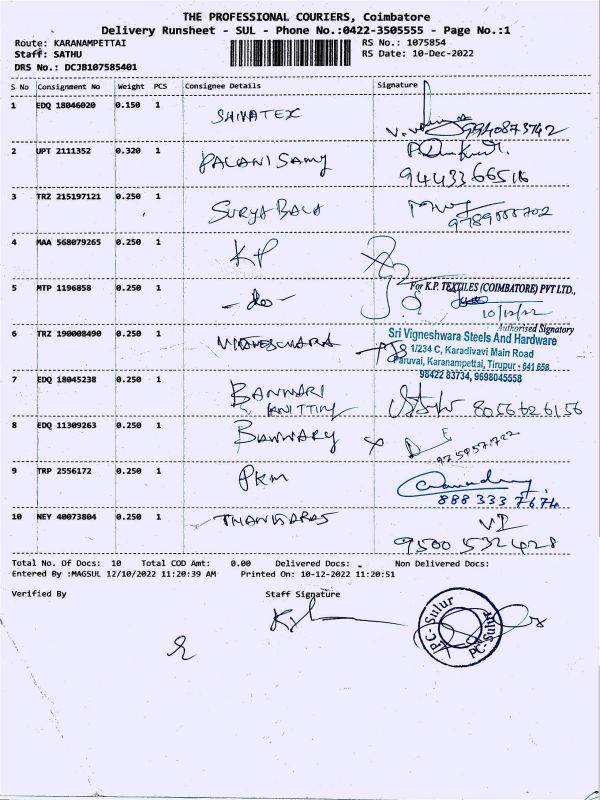 THE PROFESSIONAL COURIERS, Coimbatore
Delivery Runsheet - SUL - Phone No.:0422-3505555 - Page No.:1
Route: KARANAMPETTAI RS No.: 1075854
Staff: SATHU RS Date: 10-Dec-2022
DRS No.: DCJB107585401
S No Consignment No Weight PCS Consignee Details Signature
1 EDQ 18046020 0.150 1 SHIVATEX 9940873742
2 UPT 2111352 0.320 1 PALANISAMY
9443366516
3 TRZ 215197121 0.250 1 SURYA BALA
4 MAA 568079265 0.250 1 KP
5 MTP 1196858 0.250 1 -do- For K.P. TEXTILES (COIMBATORE) PVT LTD.,
10/12/22
Authorised Signatory
6 TRZ 190008490 0.250 1 Sri Vigneshwara Steels And Hardware
1/234 C, Karadivavi Main Road
Paruvai, Karanampettai, Tirupur - 641 658
98422 83734, 9698045558
7 EDQ 18045238 0.250 1 BANWARI
KNITTING 8056626156
8 EDQ 11309263 0.250 1 BANWARY
9 TRP 2556172 0.250 1 PKM
888 333 7674
10 NEY 40073804 0.250 1 THANGARAS
9500532428
Total No. Of Docs: 10 Total COD Amt: 0.00 Delivered Docs: Non Delivered Docs:
Entered By :MAGSUL 12/10/2022 11:20:39 AM Printed On: 10-12-2022 11:20:51
Verified By Staff Signature
PC-Sulur
PC-Sulur